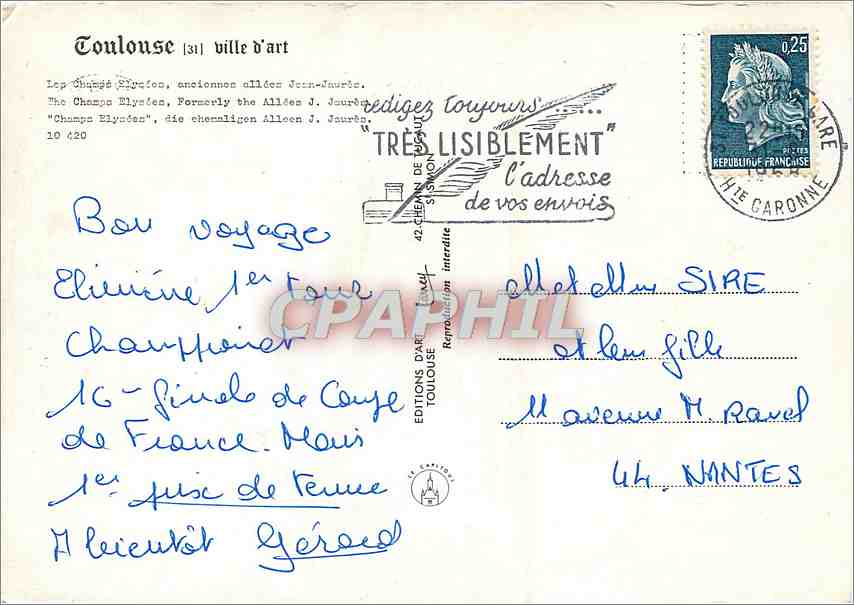 Toulouse [31] ville d'art
Les Champs Elysées, anciennes allées Jean-Jaurès.
The Champs Elysées, Formerly the Allées J. Jaurès.
"Champs Elysées", die ehemaligen Alleen J. Jaurès.
10 420
redigez toujours......
"TRÈS LISIBLEMENT"
l'adresse
de vos envois
0,25
POSTES
REPUBLIQUE FRANÇAISE
TOULOUSE GARE
Hte GARONNE
Bon voyage
Eliminé 1er tour
Championnat
16e finale de Coupe
de France. Mais
1er prix de tenue
A bientôt Gérard
EDITIONS D'ART Larrey 42-CHEMIN DE TUCAUT
TOULOUSE St SIMON
Reproduction interdite
LE CAPITOUL
CPAPHIL
M et Mme SIRE
et leur fille
11 avenue M. Ravel
44. NANTES